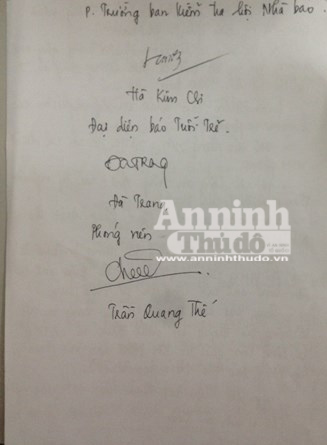 P. Trưởng ban kiểm tra hội Nhà báo.
Hà Kim Chi
Đại diện báo Tuổi Trẻ.
ĐATRAG
Đà Trang
Phóng viên
An ninh
Thủ đô
www.anninhthudo.vn
Trần Quang Thế